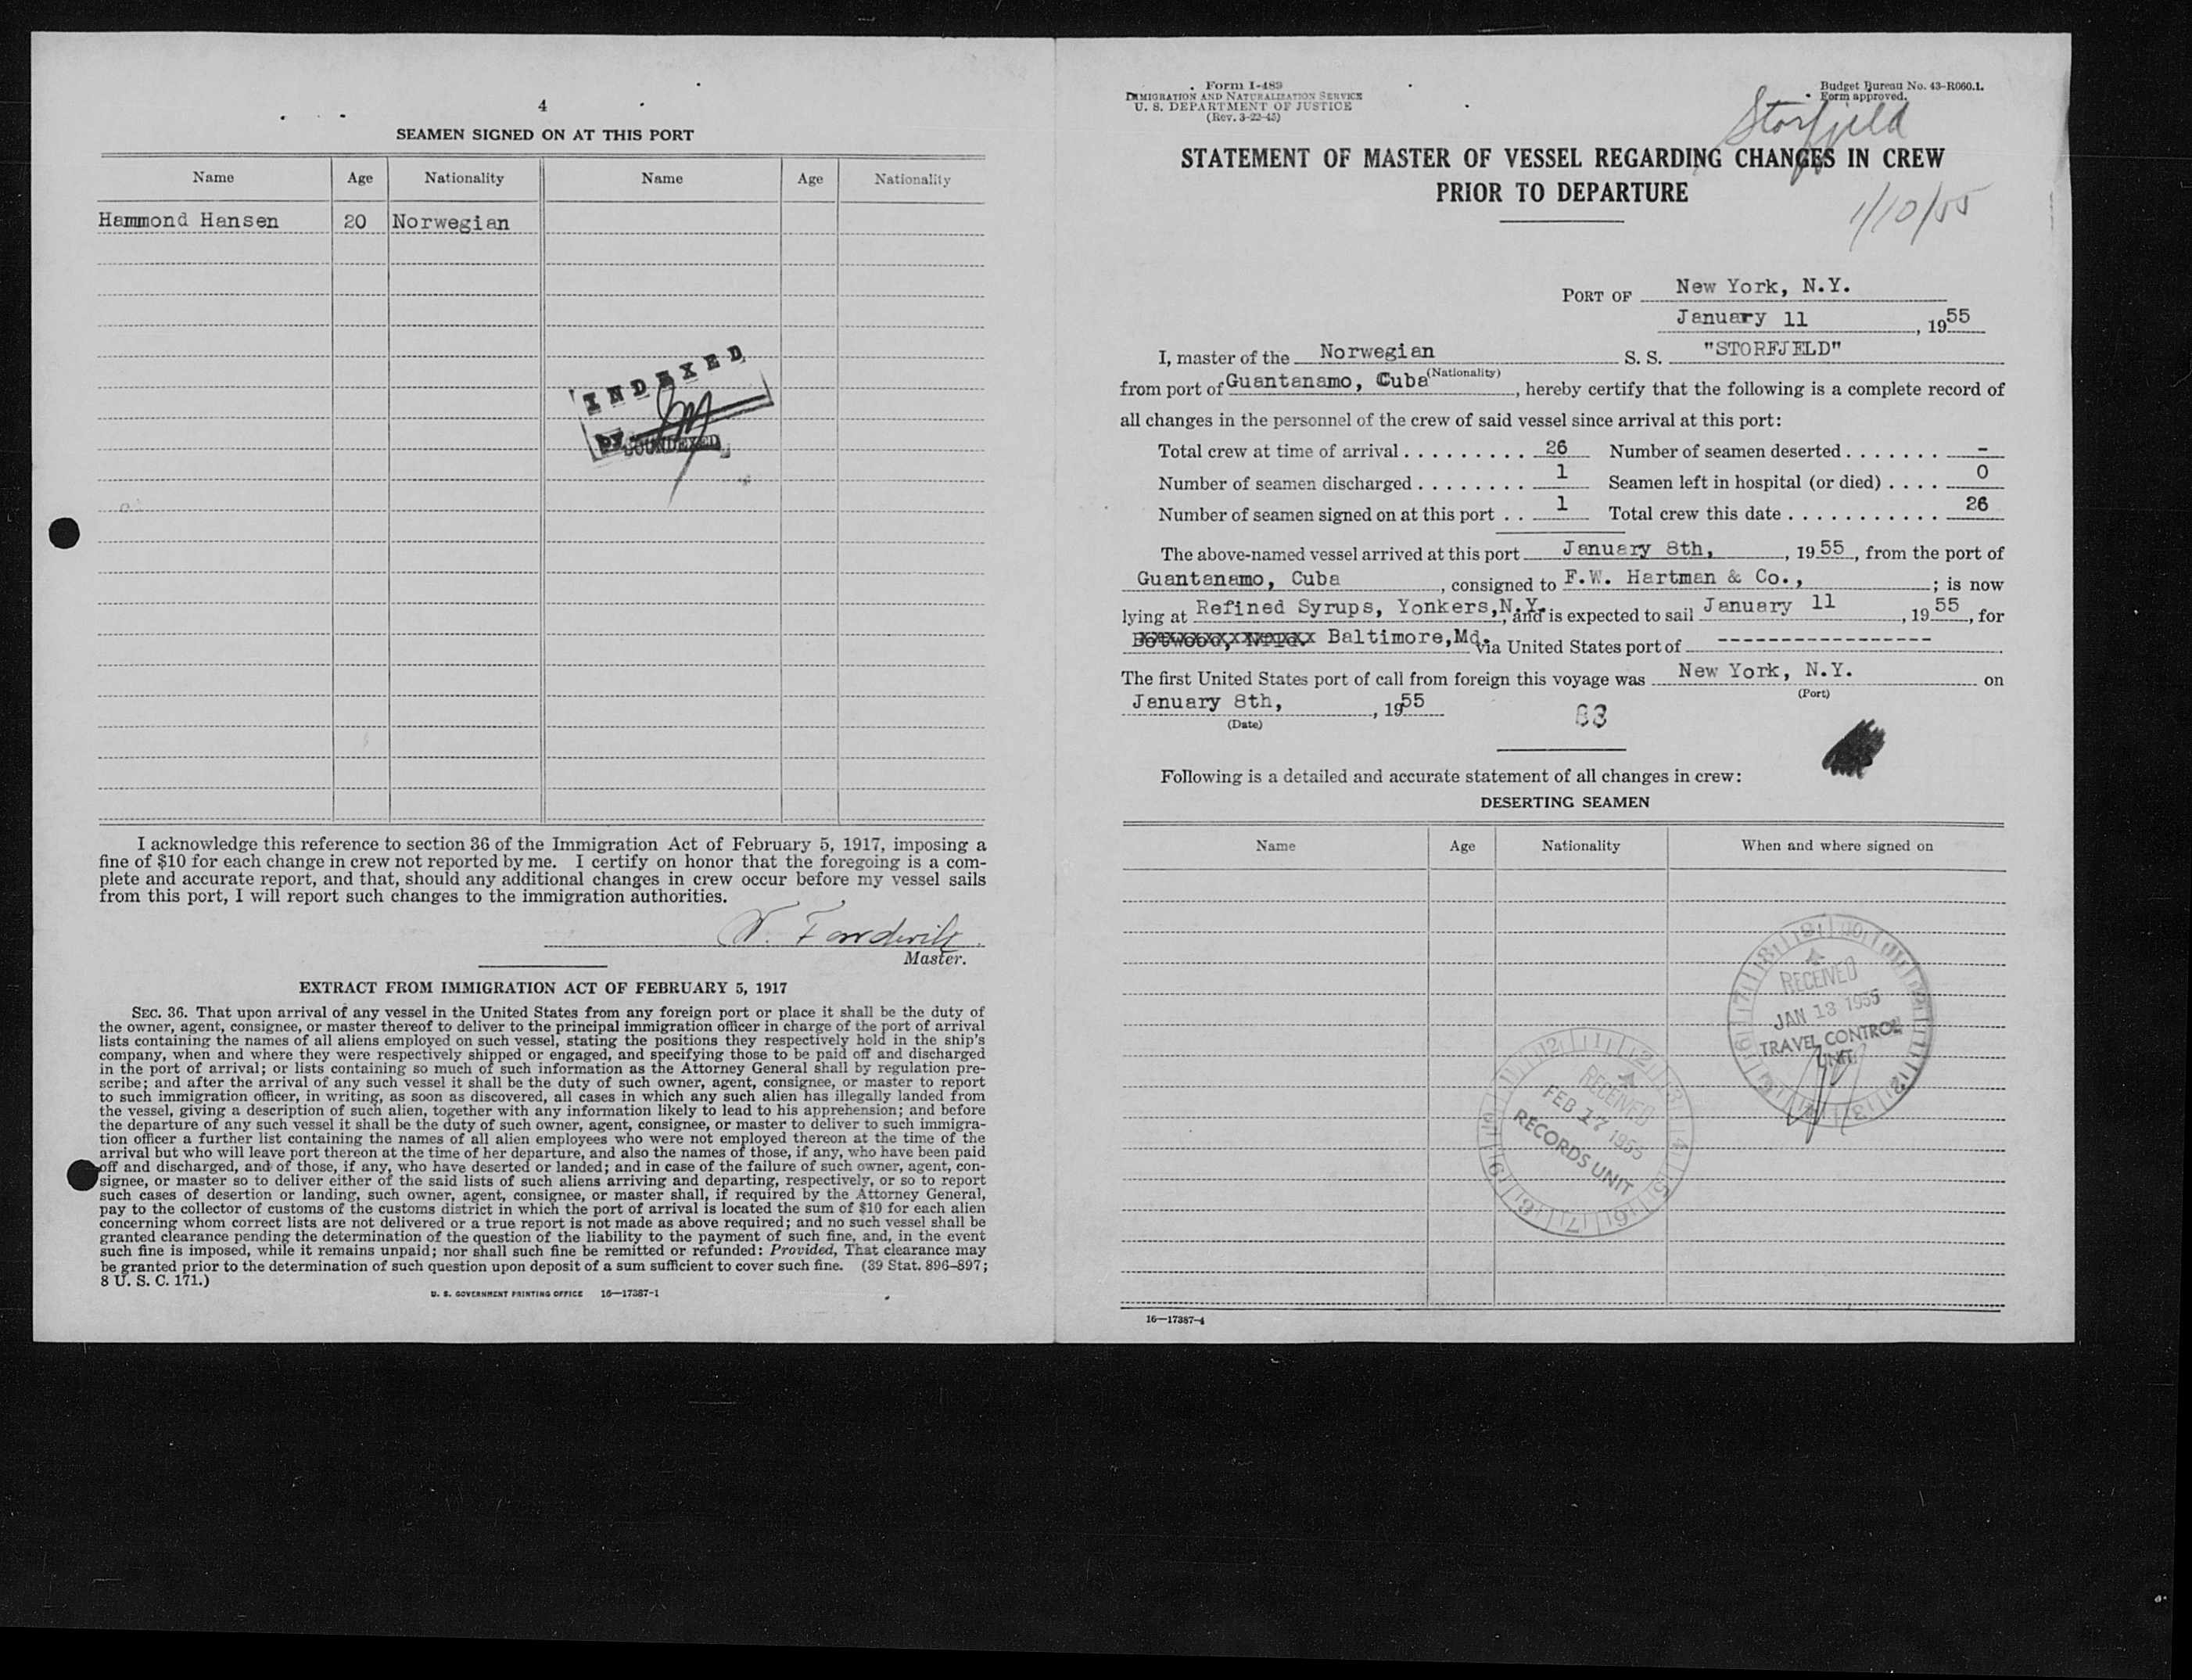 4
SEAMEN SIGNED ON AT THIS PORT
Name Age Nationality Name Age Nationality
Hammond Hansen 20 Norwegian
INDEXED
by
SOUNDEXED
I acknowledge this reference to section 36 of the Immigration Act of February 5, 1917, imposing a
fine of $10 for each change in crew not reported by me. I certify on honor that the foregoing is a com-
plete and accurate report, and that, should any additional changes in crew occur before my vessel sails
from this port, I will report such changes to the immigration authorities.
Master.
EXTRACT FROM IMMIGRATION ACT OF FEBRUARY 5, 1917
SEC. 36. That upon arrival of any vessel in the United States from any foreign port or place it shall be the duty of
the owner, agent, consignee, or master thereof to deliver to the principal immigration officer in charge of the port of arrival
lists containing the names of all aliens employed on such vessel, stating the positions they respectively hold in the ship's
company, when and where they were respectively shipped or engaged, and specifying those to be paid off and discharged
in the port of arrival; or lists containing so much of such information as the Attorney General shall by regulation pre-
scribe; and after the arrival of any such vessel it shall be the duty of such owner, agent, consignee, or master to report
to such immigration officer, in writing, as soon as discovered, all cases in which any such alien has illegally landed from
the vessel, giving a description of such alien, together with any information likely to lead to his apprehension; and before
the departure of any such vessel it shall be the duty of such owner, agent, consignee, or master to deliver to such immigra-
tion officer a further list containing the names of all alien employees who were not employed thereon at the time of the
arrival but who will leave port thereon at the time of her departure, and also the names of those, if any, who have been paid
off and discharged, and of those, if any, who have deserted or landed; and in case of the failure of such owner, agent, con-
signee, or master so to deliver either of the said lists of such aliens arriving and departing, respectively, or so to report
such cases of desertion or landing, such owner, agent, consignee, or master shall, if required by the Attorney General,
pay to the collector of customs of the customs district in which the port of arrival is located the sum of $10 for each alien
concerning whom correct lists are not delivered or a true report is not made as above required; and no such vessel shall be
granted clearance pending the determination of the question of the liability to the payment of such fine, and, in the event
such fine is imposed, while it remains unpaid; nor shall such fine be remitted or refunded: Provided, That clearance may
be granted prior to the determination of such question upon deposit of a sum sufficient to cover such fine. (39 Stat. 896-897;
8 U. S. C. 171.)
U. S. GOVERNMENT PRINTING OFFICE 16—17387-1
Form I-489
IMMIGRATION AND NATURALIZATION SERVICE
U. S. DEPARTMENT OF JUSTICE
(Rev. 3-22-45)
Budget Bureau No. 43-R060.1.
Form approved.
Storfjeld
STATEMENT OF MASTER OF VESSEL REGARDING CHANGES IN CREW
PRIOR TO DEPARTURE
1/10/55
PORT OF New York, N.Y.
January 11, 1955
I, master of the Norwegian S. S. "STORFJELD"
(Nationality)
from port of Guantanamo, Cuba, hereby certify that the following is a complete record of
all changes in the personnel of the crew of said vessel since arrival at this port:
Total crew at time of arrival . . . . . . . . . 26 Number of seamen deserted . . . . . . . -
Number of seamen discharged . . . . . . . . 1 Seamen left in hospital (or died) . . . . 0
Number of seamen signed on at this port . . 1 Total crew this date . . . . . . . . . . . 26
The above-named vessel arrived at this port January 8th, , 1955, from the port of
Guantanamo, Cuba, consigned to F.W. Hartman & Co., ; is now
lying at Refined Syrups, Yonkers,N.Y., and is expected to sail January 11, 1955, for
Baltimore,Md. via United States port of -----------------
The first United States port of call from foreign this voyage was New York, N.Y. on
(Port)
January 8th, , 1955
(Date)
83
Following is a detailed and accurate statement of all changes in crew:
DESERTING SEAMEN
Name Age Nationality When and where signed on
RECEIVED
JAN 13 1955
TRAVEL CONTROL
UNIT
RECEIVED
FEB 17 1955
RECORDS UNIT
16—17387-4